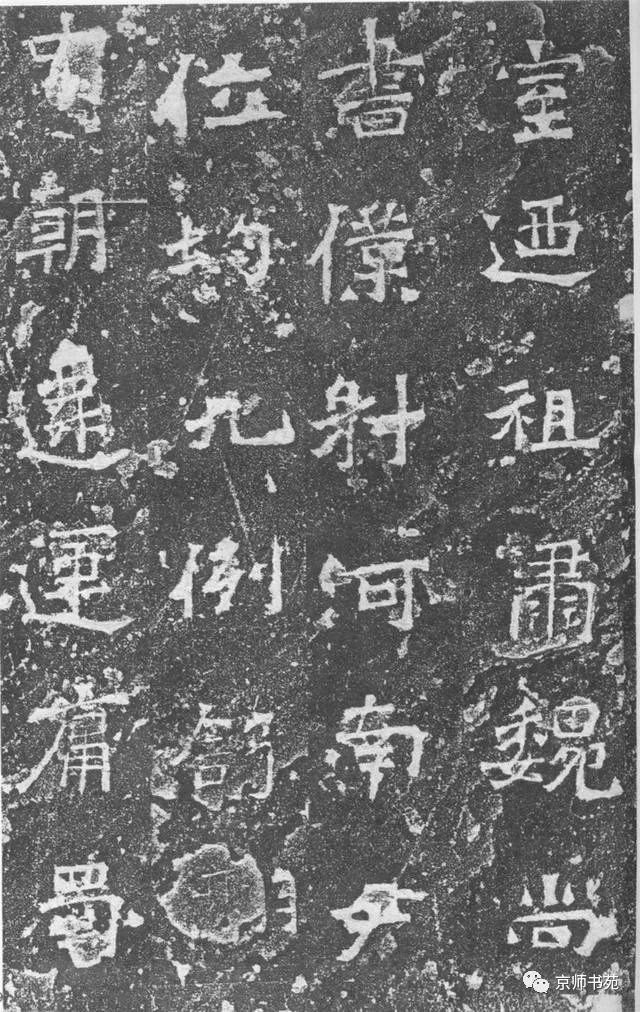 室迺祖肅魏尚
書僕射河南尹
位均九例舒
朝遷運庸蜀
京师书苑